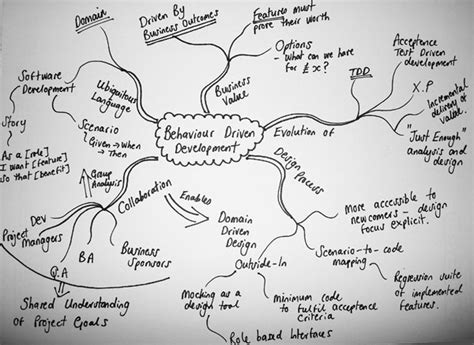 Domain
Driven By
Business Outcomes
Features must
prove their worth
Options
- What can we have
for £x?
Business
Value
Acceptance
Test Driven
development
TDD
X.P
Incremental
delivery of
value.
"Just Enough"
analysis and
design
Evolution of
Behaviour Driven
Development
Ubiquitous
Language
Software
Development
Story
As a [role]
I want [feature]
so that [benefit]
Scenario
Given → When
→ Then
Collaboration
Dev
Project
Managers
BA
Q.A
Business
Sponsors
Shared Understanding
of Project Goals
Enables
Domain
Driven
Design
Design
Process
Outside-In
Mocking as a
design tool
Role based Interfaces
Minimum code
to fulfil acceptance
Criteria
More accessible to
newcomers - design
focus explicit.
Scenario-to-code
mapping
Regression suite
of implemented
features.